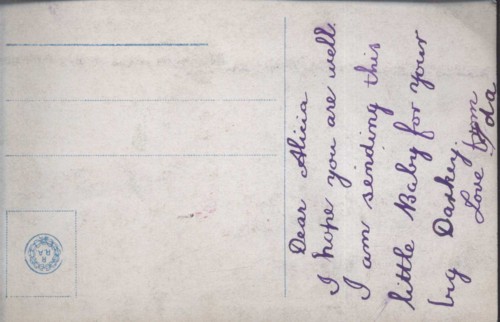 Dear Alicia
I hope you are well.
I am sending this
little Baby for your
big Darkey.
Love from
da